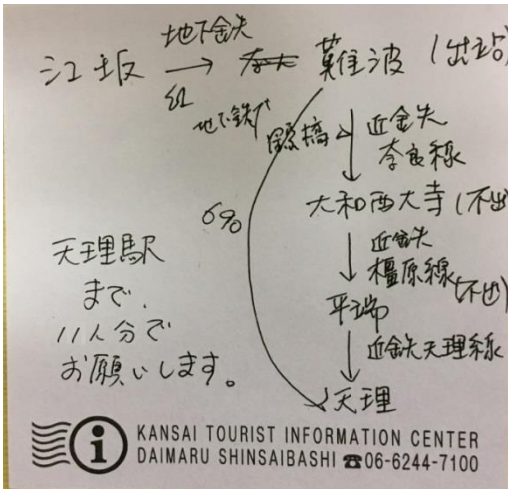 江坂 地下鉄 → 難波 (出站)
紅
地下鉄
近鉄
奈良線
大和西大寺 (不出
近鉄
橿原線 (不出)
平端
近鉄天理線
天理
天理駅
まで、
11人分で
お願いします。
KANSAI TOURIST INFORMATION CENTER
DAIMARU SHINSAIBASHI ☎06-6244-7100